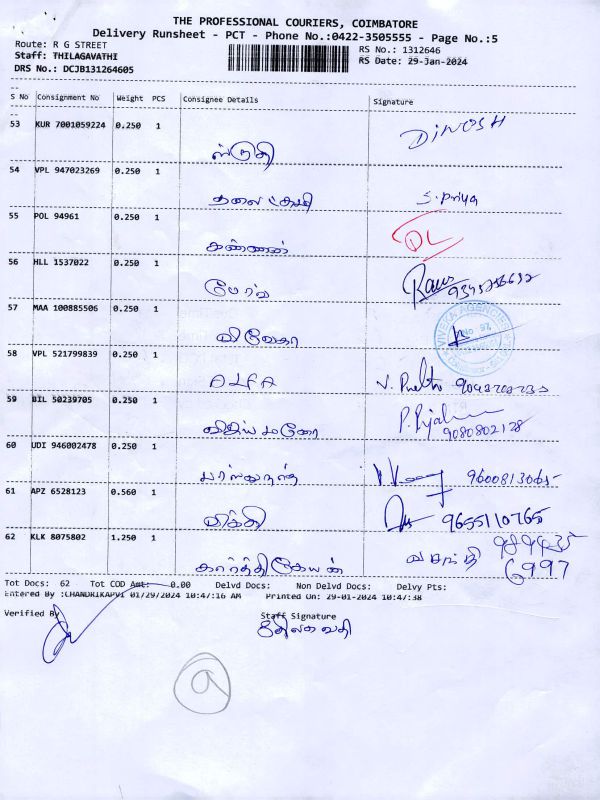 THE PROFESSIONAL COURIERS, COIMBATORE
Delivery Runsheet - PCT - Phone No.:0422-3505555 - Page No.:5
Route: R G STREET RS No.: 1312646
Staff: THILAGAVATHI RS Date: 29-Jan-2024
DRS No.: DCJB131264605
S No Consignment No Weight PCS Consignee Details Signature
53 KUR 7001059224 0.250 1
ஸ்ருதி DINOSH
54 VPL 947023269 0.250 1
S. Priya
55 POL 94961 0.250 1
கண்ணன் DL
56 HLL 1537022 0.250 1
57 MAA 100885506 0.250 1
விவேகா VIVEKA AGENCIES
58 VPL 521799839 0.250 1
ALFA
59 BIL 50239705 0.250 1
விஜய் மனோ 9080802128
60 UDI 946002478 0.250 1
9600813065
61 APZ 6528123 0.560 1
விக்கி 9655110765
62 KLK 8075802 1.250 1
கார்த்திகேயன் வசந்தி
6997
Tot Docs: 62 Tot COD Amt: 0.00 Delvd Docs: Non Delvd Docs: Delvy Pts:
Entered By :CHANDRIKAPVI 01/29/2024 10:47:16 AM Printed On: 29-01-2024 10:47:38
Verified By Staff Signature
திலகவதி
a